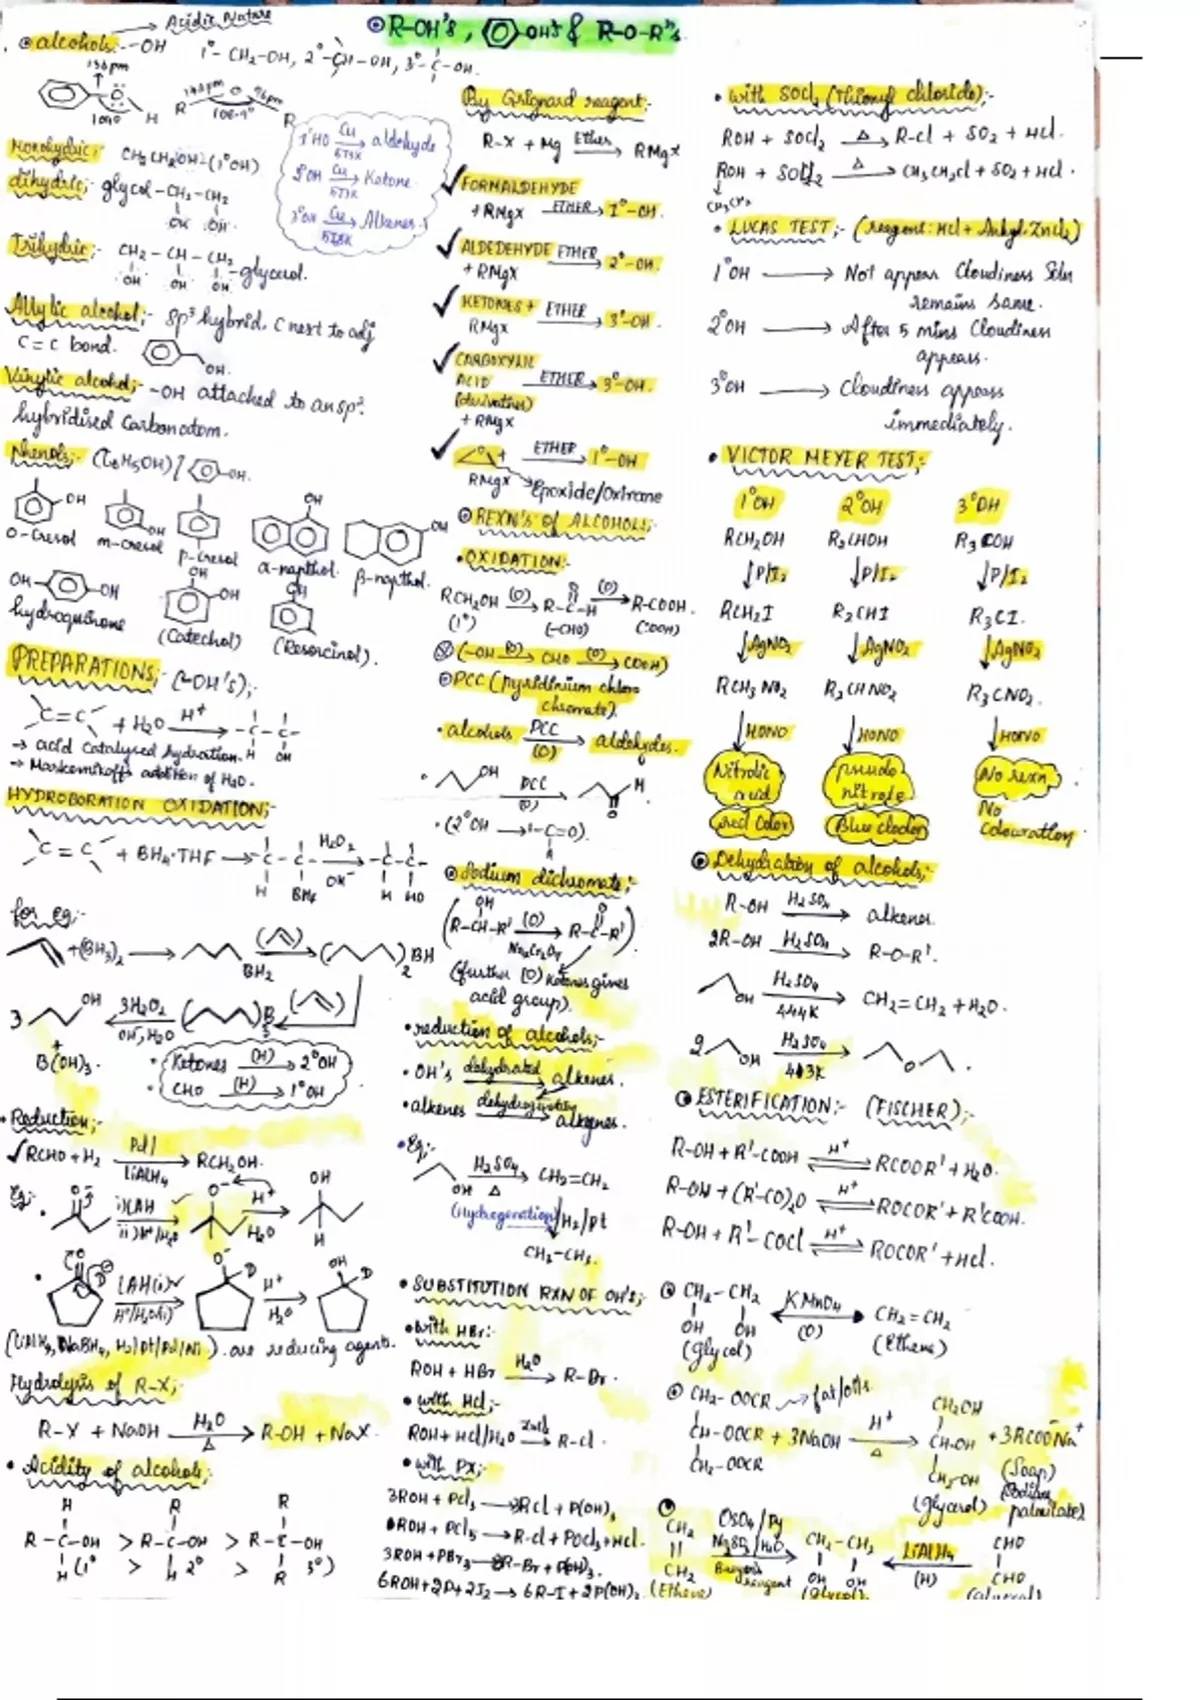 → Acidic Nature
⊙ R-OH's, OH's & R-O-R's.
⊙ alcohols: -OH
1°- CH2-OH, 2°-CH-OH, 3°-C-OH.
136pm
109°
H
R
142pm O 96pm
108.9°
R
1°HO Cu/573K → aldehyde
2°OH Cu/573K → Ketone
3°OH Cu/573K → Alkenes
Monohydric: CH3CH2OH-(1°OH)
dihydric; glycol-CH2-CH2
OH OH
Trihydric: CH2 - CH - CH2
OH OH OH -glycerol.
Allylic alcohol:- sp3 hybrid. C next to adj
C=C bond.
OH.
Vinylic alcohol;- -OH attached to an sp2
hybridised Carbon atom.
Phenols;- (C6H5OH)/ OH.
OH OH OH OH
o-Cresol m-cresol p-cresol α-napthol β-napthol.
OH- -OH
OH -OH OH
hydroquinone (Catechol) (Resorcinol).
PREPARATIONS;- (-OH's);-
C=C + H2O H+ → -C-C-
H OH
→ acid catalysed hydration.
→ Markownikoff's addition of H2O.
HYDROBORATION OXIDATION;-
C=C + BH4·THF → -C-C- H2O2/OH- → -C-C-
H BH4 H HO
for eg:-
+(BH3)2 → BH2 → ( )2 BH
3 OH 3H2O2/OH-, H2O ← ( )3 B
+
B(OH)3.
• Ketones (H) → 2°OH
• CHO (H) → 1°OH
• Reduction;-
√RCHO + H2 Pd/LiAlH4 → RCH2OH.
Eg:-
i)LAH
ii)H+/H2O
O- H+/H2O → OH
H
LAH(i)
H+/H2O(ii)
O- D H+/H2O → OH D
(LiAlH4, NaBH4, H2/Pt/Pd/Ni). are reducing agents.
Hydrolysis of R-X;-
R-X + NaOH H2O/Δ → R-OH + NaX.
• Acidity of alcohols;-
H R R
R-C-OH > R-C-OH > R-C-OH
H (1° > H 2° > R 3°)
By Grignard reagent:-
R-X + Mg Ether → RMgX
✓ FORMALDEHYDE
+ RMgX ETHER → 1°-OH.
✓ ALDEDEHYDE ETHER → 2°-OH.
+ RMgX
✓ KETONES + ETHER → 3°-OH.
RMgX
✓ CARBOXYLIC
ACID ETHER → 3°-OH.
(derivatives)
+ RMgX
✓ O + ETHER → 1°-OH
RMgX → Epoxide/Oxirane
⊙ REXN's of ALCOHOLS;-
• OXIDATION:-
RCH2OH (O) → R-C-H (O) → R-COOH.
(1°) (-CHO) (COOH)
(-OH (O) → CHO (O) → COOH)
⊙ PCC (pyridinium chloro
chromate).
• alcohols PCC/(O) → aldehydes.
• OH PCC/(O) → H
O
• (2°OH → -C=O).
⊙ Sodium dichromate;-
OH O
(R-CH-R' (O)/Na2Cr2O7 → R-C-R')
(further (O) Ketones gives
acid group).
• reduction of alcohols;-
• OH's dehydrated → alkenes.
• alkenes dehydrogenation → alkynes.
• Eg:-
OH H2SO4/Δ → CH2=CH2
(Hydrogenation) ↓H2/Pt
CH3-CH3.
• SUBSTITUTION RXN OF OH's;-
• with HBr:-
ROH + HBr H2O → R-Br.
• with HCl;-
ROH + HCl/H2O ZnCl2 → R-Cl.
• with PX;-
3ROH + PCl3 → 3RCl + P(OH)3
ROH + PCl5 → R-Cl + POCl3 + HCl.
3ROH + PBr3 → 3R-Br + P(OH)3.
6ROH + 2P + 2I2 → 6R-I + 2P(OH)3
• with SOCl2 (Thionyl chloride);-
ROH + SOCl2 Δ → R-Cl + SO2 + HCl.
ROH + SOCl2 Δ → CH3CH2Cl + SO2 + HCl.
↓
CH3CH2
• LUCAS TEST;- (reagent: HCl + Anhyd. ZnCl2)
1°OH → Not appear Cloudiness Soln
remains same.
2°OH → After 5 mins Cloudiness
appears.
3°OH → Cloudiness appears
immediately.
• VICTOR MEYER TEST;-
1°OH 2°OH 3°OH
RCH2OH R2CHOH R3COH
↓P/I2 ↓P/I2 ↓P/I2
RCH2I R2CHI R3CI.
↓AgNO2 ↓AgNO2 ↓AgNO2
RCH3NO2 R2CHNO2 R3CNO2.
↓HONO ↓HONO ↓HONO
Nitrolic acid pseudo nitrole No rexn
Red Color Blue Color No Colouration
⊙ Dehydration of alcohols;-
R-OH H2SO4 → alkenes.
2R-OH H2SO4 → R-O-R'.
OH H2SO4/444K → CH2=CH2 + H2O.
2 OH H2SO4/413K → O.
⊙ ESTERIFICATION:- (FISCHER);-
R-OH + R'-COOH H+ ⇌ RCOOR' + H2O.
R-OH + (R'-CO)2O H+ ⇌ ROCOR' + R'COOH.
R-OH + R'-COCl H+ ⇌ ROCOR' + HCl.
⊙ CH2-CH2 KMnO4/(O) ↔ CH2=CH2
OH OH (Ethene)
(glycol)
⊙ CH2-OOCR → fat/oils CH2OH
CH-OOCR + 3NaOH H+/Δ → CH-OH + 3RCOO-Na+
CH2-OOCR CH2-OH (Soap)
(glycerol) (Sodium palmitate)
CH2 OsO4/Py CH2-CH2 LiAlH4 CHO
|| Na2SO3/H2O → ← (H)
CH2 Baeyer's reagent OH OH CHO
(Ethene) (Glycol)